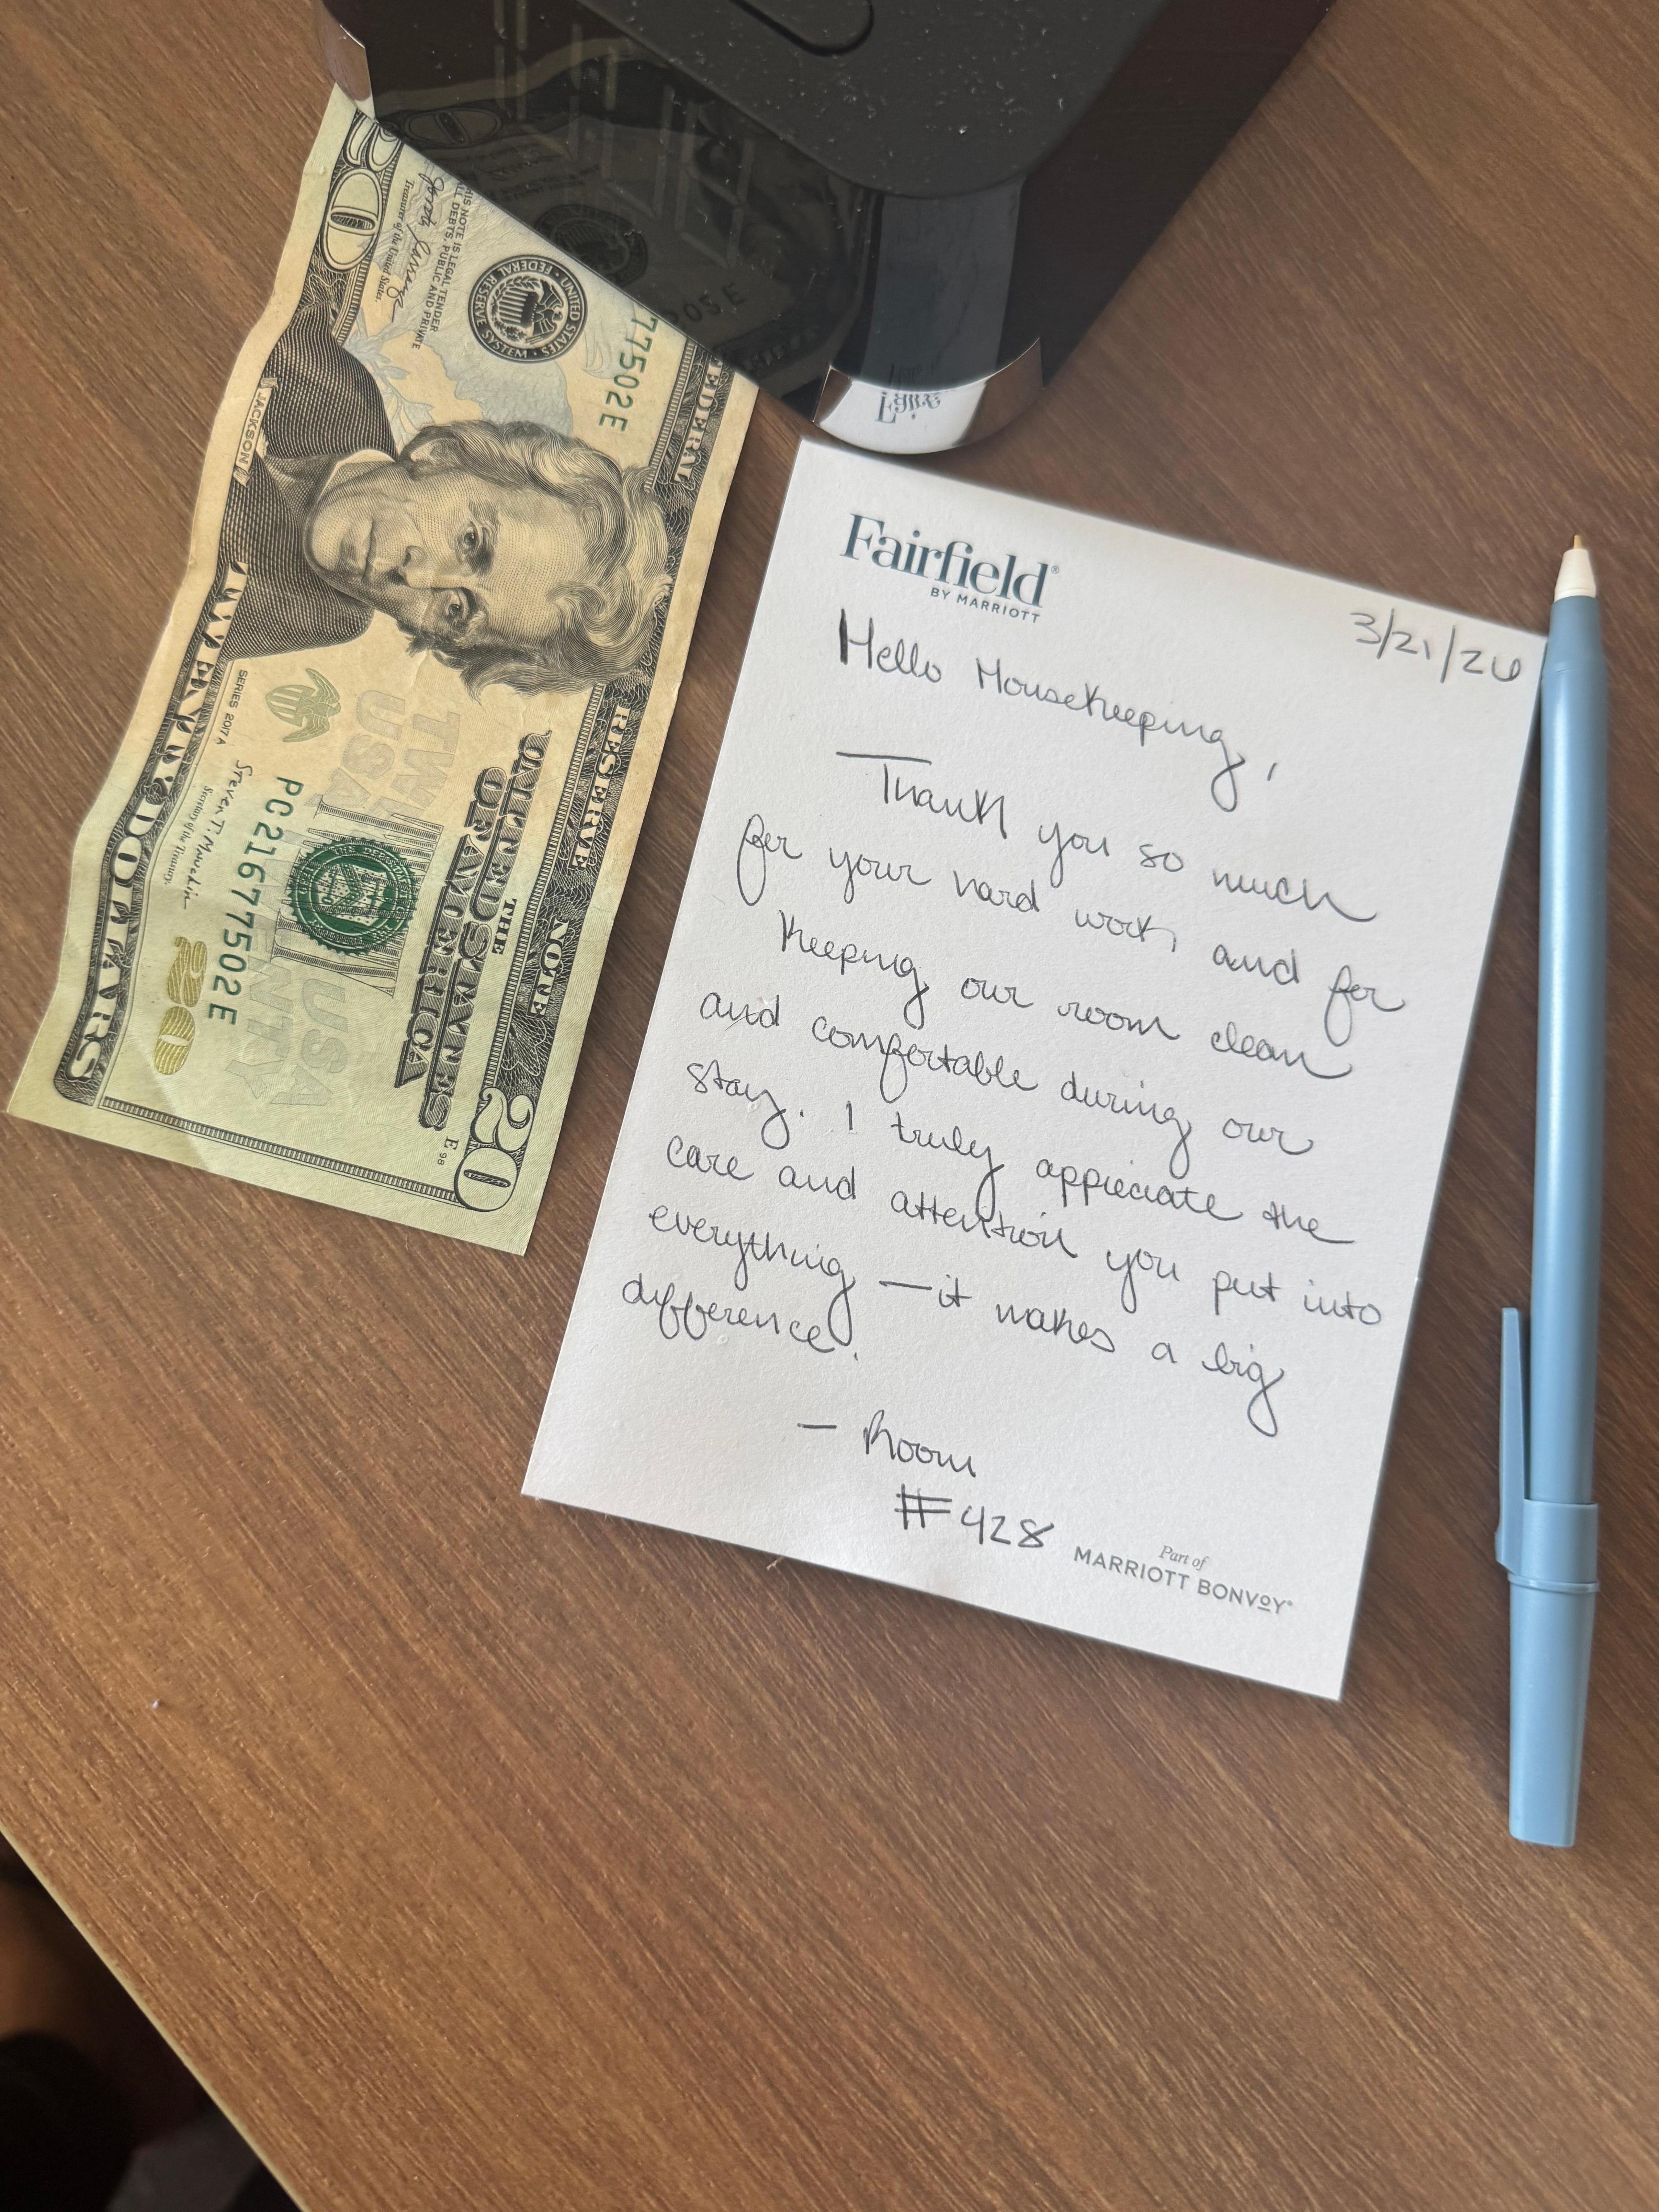 Fairfield®
BY MARRIOTT
3/21/26
Hello Housekeeping,
Thank you so much
for your hard work, and for
keeping our room clean
and comfortable during our
stay. I truly appreciate the
care and attention you put into
everything — it makes a big
difference.
— Room
#428
Part of
MARRIOTT BONVOY®
FEDERAL RESERVE NOTE
THE
UNITED STATES
OF AMERICA
THIS NOTE IS LEGAL TENDER
ALL DEBTS, PUBLIC AND PRIVATE
Treasurer of the United States.
UNITED STATES FEDERAL RESERVE SYSTEM
77502E
JACKSON
SERIES 2017 A
TWENTY USA
Steven T. Mnuchin
Secretary of the Treasury.
PC21677502E
USA TWENTY
20
E 98
20
TWENTY DOLLARS